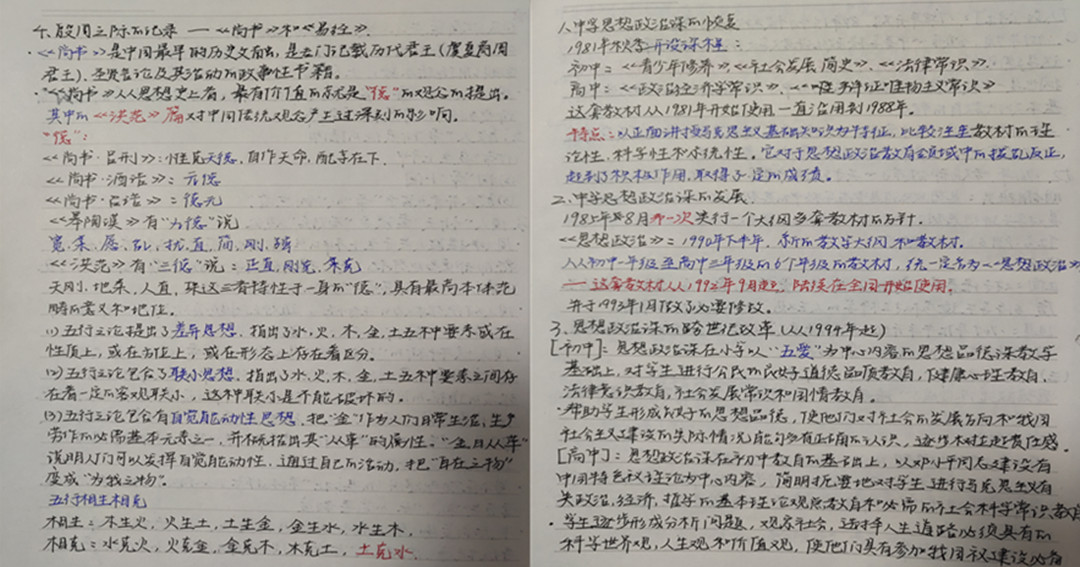 个、殷周之际的记录 —— 《尚书》和《易经》.
《尚书》是中国最早的历史文献, 是专门记载历代君王(虞夏商周
君王)、圣贤言论及其活动的政事性书籍。
·《尚书》从思想史上看, 最有价值的就是“德”的观念的提出。
其中的《洪范》篇对中国传统观念产生过深刻的影响。
“德”:
《尚书·吕刑》: 惟克天德, 自作天命, 配享在下.
《尚书·酒诰》: 元德
《尚书·召诰》: 德元
《皋陶谟》有“九德”说
宽、柔、愿、乱、扰、直、简、刚、强
《洪范》有“三德”说: 正直, 刚克, 柔克
天刚, 地柔, 人直, 集这三者特性于一身的“德”, 具有最高本体范
畴的意义和地位.
(1) 五行之论提出了差异思想. 指出了水, 火, 木, 金, 土五种要素或在
性质上, 或在方位上, 或在形态上存在着区分.
(2) 五行之论包含了联系思想, 指出了水, 火, 木, 金, 土五种要素之间存
在着一定的客观联系, 这种联系是不能破坏的.
(3) 五行之论包含有自觉能动性思想. 把“金”作为人们日常生活, 生产
劳作的必需基本元素之一, 并概括出其“从革”的属性. “金曰从革”
说明人们可以发挥自觉能动性, 通过自己的活动, 把“自在之物”
变成“为我之物”.
五行相生相克
相生: 木生火, 火生土, 土生金, 金生水, 水生木.
相克: 水克火, 火克金, 金克木, 木克土, 土克水.
1、中学思想政治课的恢复
1981年秋季开设课程:
初中: 《青少年修养》《社会发展简史》、《法律常识》.
高中: 《政治经济学常识》、《辩证唯物主义常识》
这套教材从1981年开始使用一直沿用到1988年.
特点: 以正面讲授马克思主义基础知识为特征, 比较注重教材的理
论性, 科学性和系统性. 它对于思想政治教育领域中的拨乱反正,
起到了积极作用, 取得了一定的成绩.
2、中学思想政治课的发展.
1985年8月第一次实行一个大纲多套教材的方针.
《思想政治》: 1990年下半年. 新的教学大纲和教材.
从初中一年级至高中三年级的6个年级的教材, 统一定名为《思想政治》
—— 这套教材从1992年9月起, 陆续在全国开始使用.
并于1993年1月做了必要修改.
3、思想政治课的跨世纪改革 (从1994年起)
[初中]: 思想政治课在小学以“五爱”为中心内容的思想品德课教学
基础上, 对学生进行公民的良好道德品质教育, 健康心理教育,
法律意识教育, 社会发展常识和国情教育.
·帮助学生形成良好的思想品德, 使他们对社会的发展方向和我国
社会主义建设的实际情况能够有正确的认识, 逐步树立起责任感.
[高中]: 思想政治课在初中教育的基础上, 以邓小平同志建设有
中国特色社会主义理论为中心内容, 简明扼要地对学生进行马克思主义有
关政治, 经济, 哲学的基本理论观点教育和必需的社会科学常识教育
·学生逐步形成分析问题, 观察社会, 选择人生道路必须具有的
科学世界观, 人生观和价值观, 使他们具有参加我国建设必备